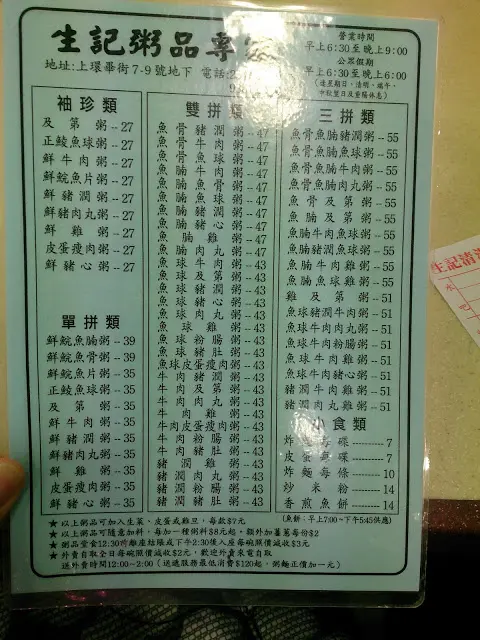 生記粥品專家
地址:上環畢街7-9號地下 電話:2
營業時間
早上6:30至晚上9:00
公眾假期
早上6:30至晚上6:00
袖珍類
及第粥--27
正鯪魚球粥--27
鮮牛肉粥--27
鮮鯇魚片粥--27
鮮豬潤粥--27
鮮豬肉丸粥--27
鮮雞粥--27
皮蛋瘦肉粥--27
鮮豬心粥--27
單拼類
鮮鯇魚腩粥--39
鮮鯇魚骨粥--39
鮮鯇魚片粥--35
正鯪魚球粥--35
及第粥--35
鮮牛肉粥--35
鮮豬潤粥--35
鮮豬肉丸粥--35
鮮雞粥--35
皮蛋瘦肉粥--35
鮮豬心粥--35
雙拼類
魚骨豬潤粥--47
魚骨牛肉粥--47
魚骨魚球粥--47
魚腩牛肉粥--47
魚腩魚骨粥--47
魚腩魚球粥--47
魚腩豬潤粥--47
魚腩豬心粥--47
魚腩雞粥--47
魚腩肉丸粥--47
魚球牛肉粥--43
魚球及第粥--43
魚球豬潤粥--43
魚球豬心粥--43
魚球肉丸粥--43
魚球雞粥--43
魚球粉腸粥--43
魚球豬肚粥--43
魚球皮蛋瘦肉粥--43
牛肉豬潤粥--43
牛肉及第粥--43
牛肉肉丸粥--43
牛肉雞粥--43
牛肉皮蛋瘦肉粥--43
牛肉粉腸粥--43
牛肉豬肚粥--43
豬潤雞粥--43
豬潤肉丸粥--43
豬潤粉腸粥--43
豬潤豬肚粥--43
三拼類
魚骨魚腩豬潤粥--55
魚骨魚腩魚球粥--55
魚骨魚腩牛肉粥--55
魚骨魚腩肉丸粥--55
魚骨及第粥--55
魚腩及第粥--55
魚腩牛肉魚球粥--55
魚腩豬潤魚球粥--55
魚腩牛肉雞粥--55
魚腩魚球雞粥--55
雞及第粥--51
魚球豬潤牛肉粥--51
魚球牛肉肉丸粥--51
魚球牛肉粉腸粥--51
魚球牛肉雞粥--51
魚球牛肉豬心粥--51
豬潤牛肉雞粥--51
豬潤牛肉肉丸粥--51
小食類
炸 每碟--------7
皮蛋 每碟--------7
炸麵每條--------10
炒米粉--------14
香煎魚餅--------14
(魚餅:早上7:00-下午5:45供應)
★以上粥品可加入生菜、皮蛋或雞旦,每款$7元
★以上粥品可隨意加料,每加一種粥料$8元起,額外加薑蔥每份$2
★粥品堂食12:30前離座結賬或下午2:30後入座每碗照價減收$3元
★外賣自取全日每碗照價減$2元,歡迎外賣來電自取
送外賣時間12:00-2:00(送遞服務最低消費$120起,粥麵正價加一元)
生記清